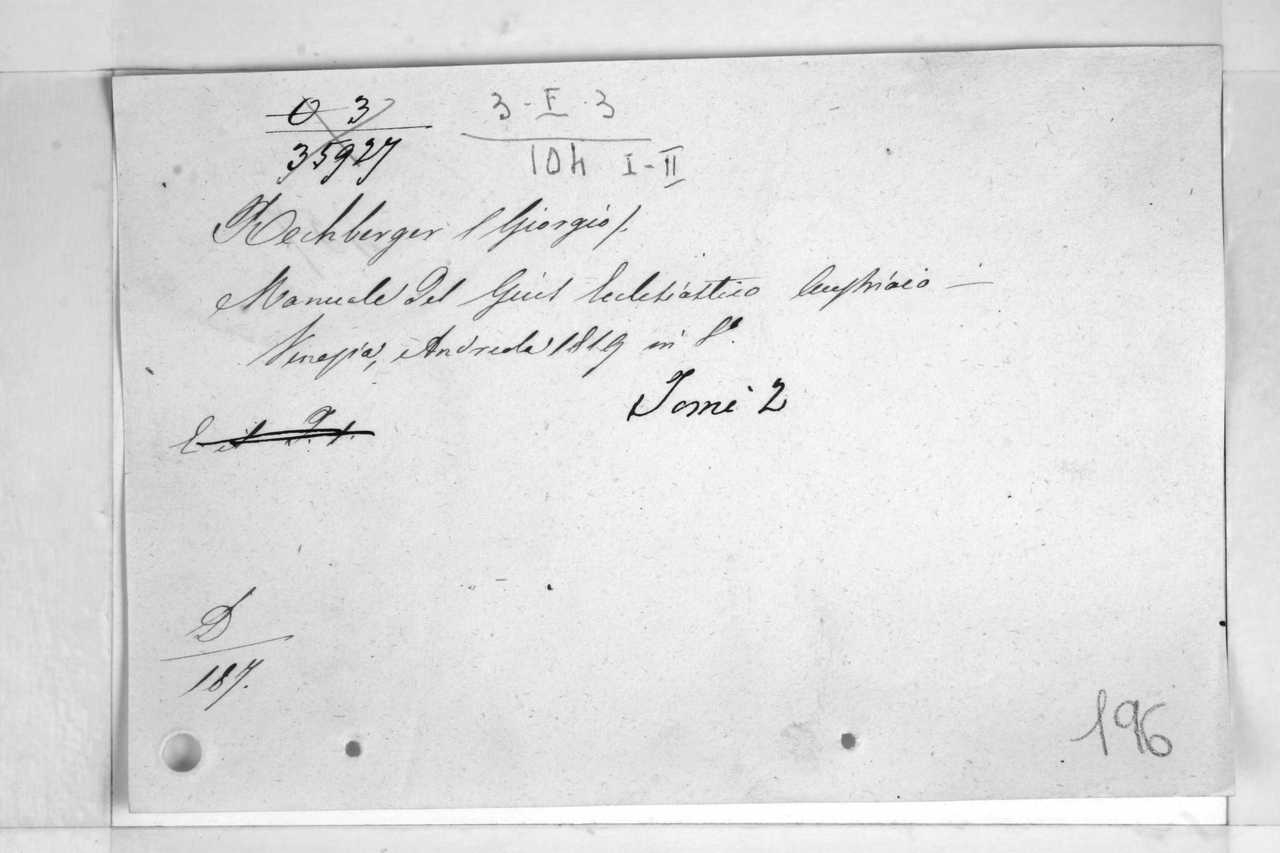 O 3
35927
3-E-3
104 I-II
Rechberger (Giorgio).
Manuale del Giust Ecclesiastico Austriaco —
Venezia, Andreola 1819 in 8º.
Tomi 2
D
187.
196